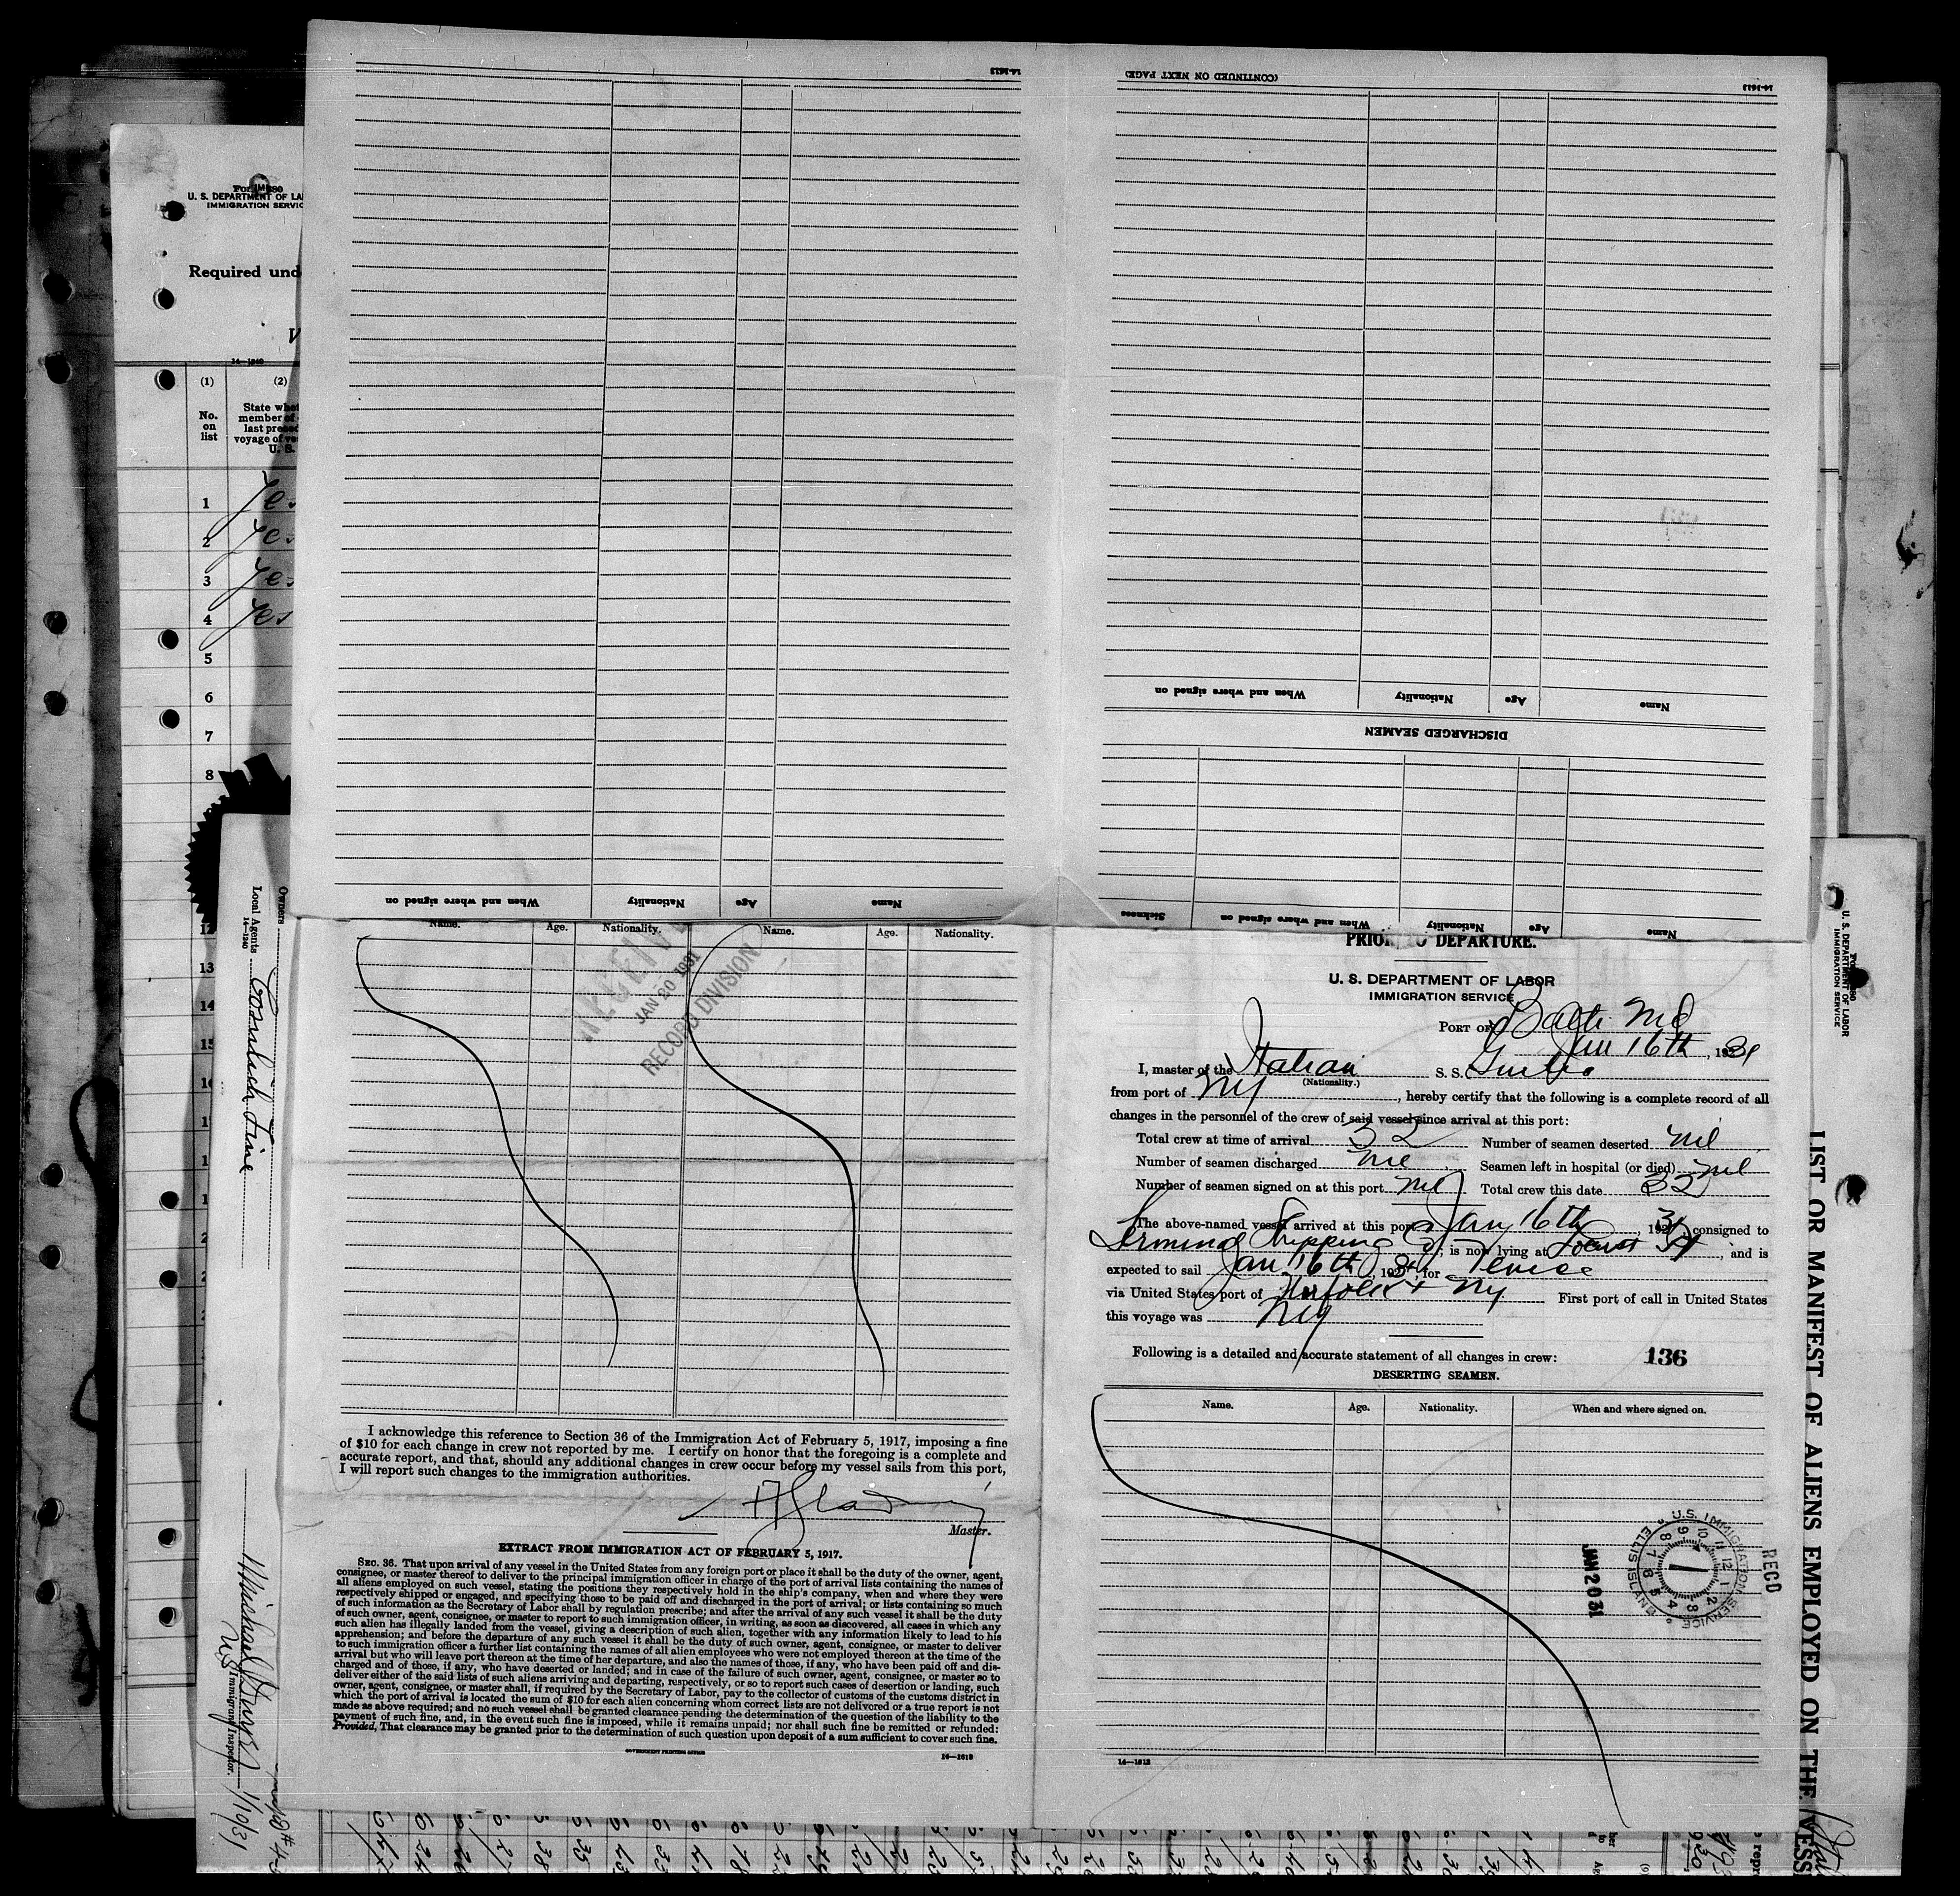 14-1613
(CONTINUED ON NEXT PAGE)
14-1613
U. S. DEPARTMENT OF LA
IMMIGRATION SERVIC
Required und
14—1240
(1)
(2)
No.
on
list
State whet
member of
last preced
voyage of ves
U. S.
1 Yes
2 Yes
3 Yes
4 Yes
5
6
7
8
When and where signed on
Nationality
Age
Name
DISCHARGED SEAMEN
When and where signed on
Nationality
Age
Name
Sickness
When and where signed on
Nationality
Age
Name
13
14
15
Owners
Local Agents
14—1240
Immigrant Inspector.
1/10/31
Name.
Age.
Nationality.
Name.
Age.
Nationality.
RECEIVED
JAN 20 1931
RECORD DIVISION
I acknowledge this reference to Section 36 of the Immigration Act of February 5, 1917, imposing a fine
of $10 for each change in crew not reported by me. I certify on honor that the foregoing is a complete and
accurate report, and that, should any additional changes in crew occur before my vessel sails from this port,
I will report such changes to the immigration authorities.
Master.
EXTRACT FROM IMMIGRATION ACT OF FEBRUARY 5, 1917.
SEC. 36. That upon arrival of any vessel in the United States from any foreign port or place it shall be the duty of the owner, agent,
consignee, or master thereof to deliver to the principal immigration officer in charge of the port of arrival lists containing the names of
all aliens employed on such vessel, stating the positions they respectively hold in the ship's company, when and where they were
respectively shipped or engaged, and specifying those to be paid off and discharged in the port of arrival; or lists containing so much
of such information as the Secretary of Labor shall by regulation prescribe; and after the arrival of any such vessel it shall be the duty
of such owner, agent, consignee, or master to report to such immigration officer, in writing, as soon as discovered, all cases in which any
such alien has illegally landed from the vessel, giving a description of such alien, together with any information likely to lead to his
apprehension; and before the departure of any such vessel it shall be the duty of such owner, agent, consignee, or master to deliver
to such immigration officer a further list containing the names of all alien employees who were not employed thereon at the time of the
arrival but who will leave port thereon at the time of her departure, and also the names of those, if any, who have been paid off and dis-
charged and of those, if any, who have deserted or landed; and in case of the failure of such owner, agent, consignee, or master so to
deliver either of the said lists of such aliens arriving and departing, respectively, or so to report such cases of desertion or landing, such
owner, agent, consignee, or master shall, if required by the Secretary of Labor, pay to the collector of customs of the customs district in
which the port of arrival is located the sum of $10 for each alien concerning whom correct lists are not delivered or a true report is not
made as above required; and no such vessel shall be granted clearance pending the determination of the question of the liability to the
payment of such fine, and, in the event such fine is imposed, while it remains unpaid; nor shall such fine be remitted or refunded:
Provided, That clearance may be granted prior to the determination of such question upon deposit of a sum sufficient to cover such fine.
GOVERNMENT PRINTING OFFICE
14—1613
PRIOR TO DEPARTURE.
U. S. DEPARTMENT OF LABOR
IMMIGRATION SERVICE
PORT OF Balto Md
Jan 16th, 1931
I, master of the Italian S. S.
(Nationality.)
from port of NY, hereby certify that the following is a complete record of all
changes in the personnel of the crew of said vessel since arrival at this port:
Total crew at time of arrival 32 Number of seamen deserted nil
Number of seamen discharged nil Seamen left in hospital (or died) nil
Number of seamen signed on at this port nil Total crew this date 32
The above-named vessel arrived at this port Jan 16th, 1931, consigned to
Terminal Shipping Co; is now lying at Locust Pt, and is
expected to sail Jan 16th, 1931, for Venice
via United States port of Norfolk + NY First port of call in United States
this voyage was NY
Following is a detailed and accurate statement of all changes in crew:
136
DESERTING SEAMEN.
Name.
Age.
Nationality.
When and where signed on.
RECD
U.S. IMMIGRATION SERVICE
ELLIS ISLAND
JAN 20 31
14—1613
U. S. DEPARTMENT OF LABOR
IMMIGRATION SERVICE
LIST OR MANIFEST OF ALIENS EMPLOYED ON THE VESS